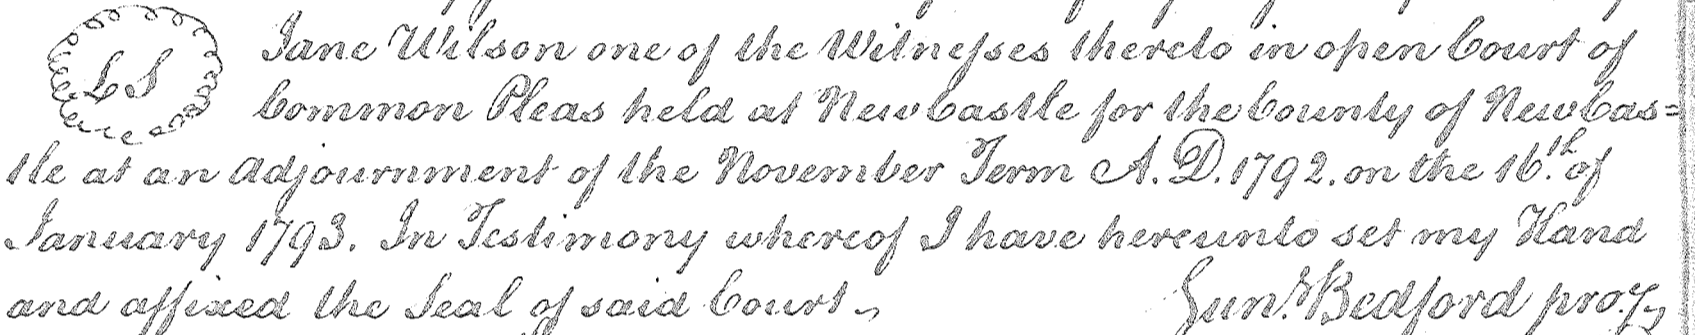 LS Jane Wilson one of the Witneſses thereto in open Court of
Common Pleas held at New Castle for the County of New Cas=
tle at an Adjournment of the November Term A.D. 1792. on the 16th. of
January 1793. In Testimony whereof I have hereunto set my Hand
and affixed the Seal of said Court~ Gunn Bedford proy